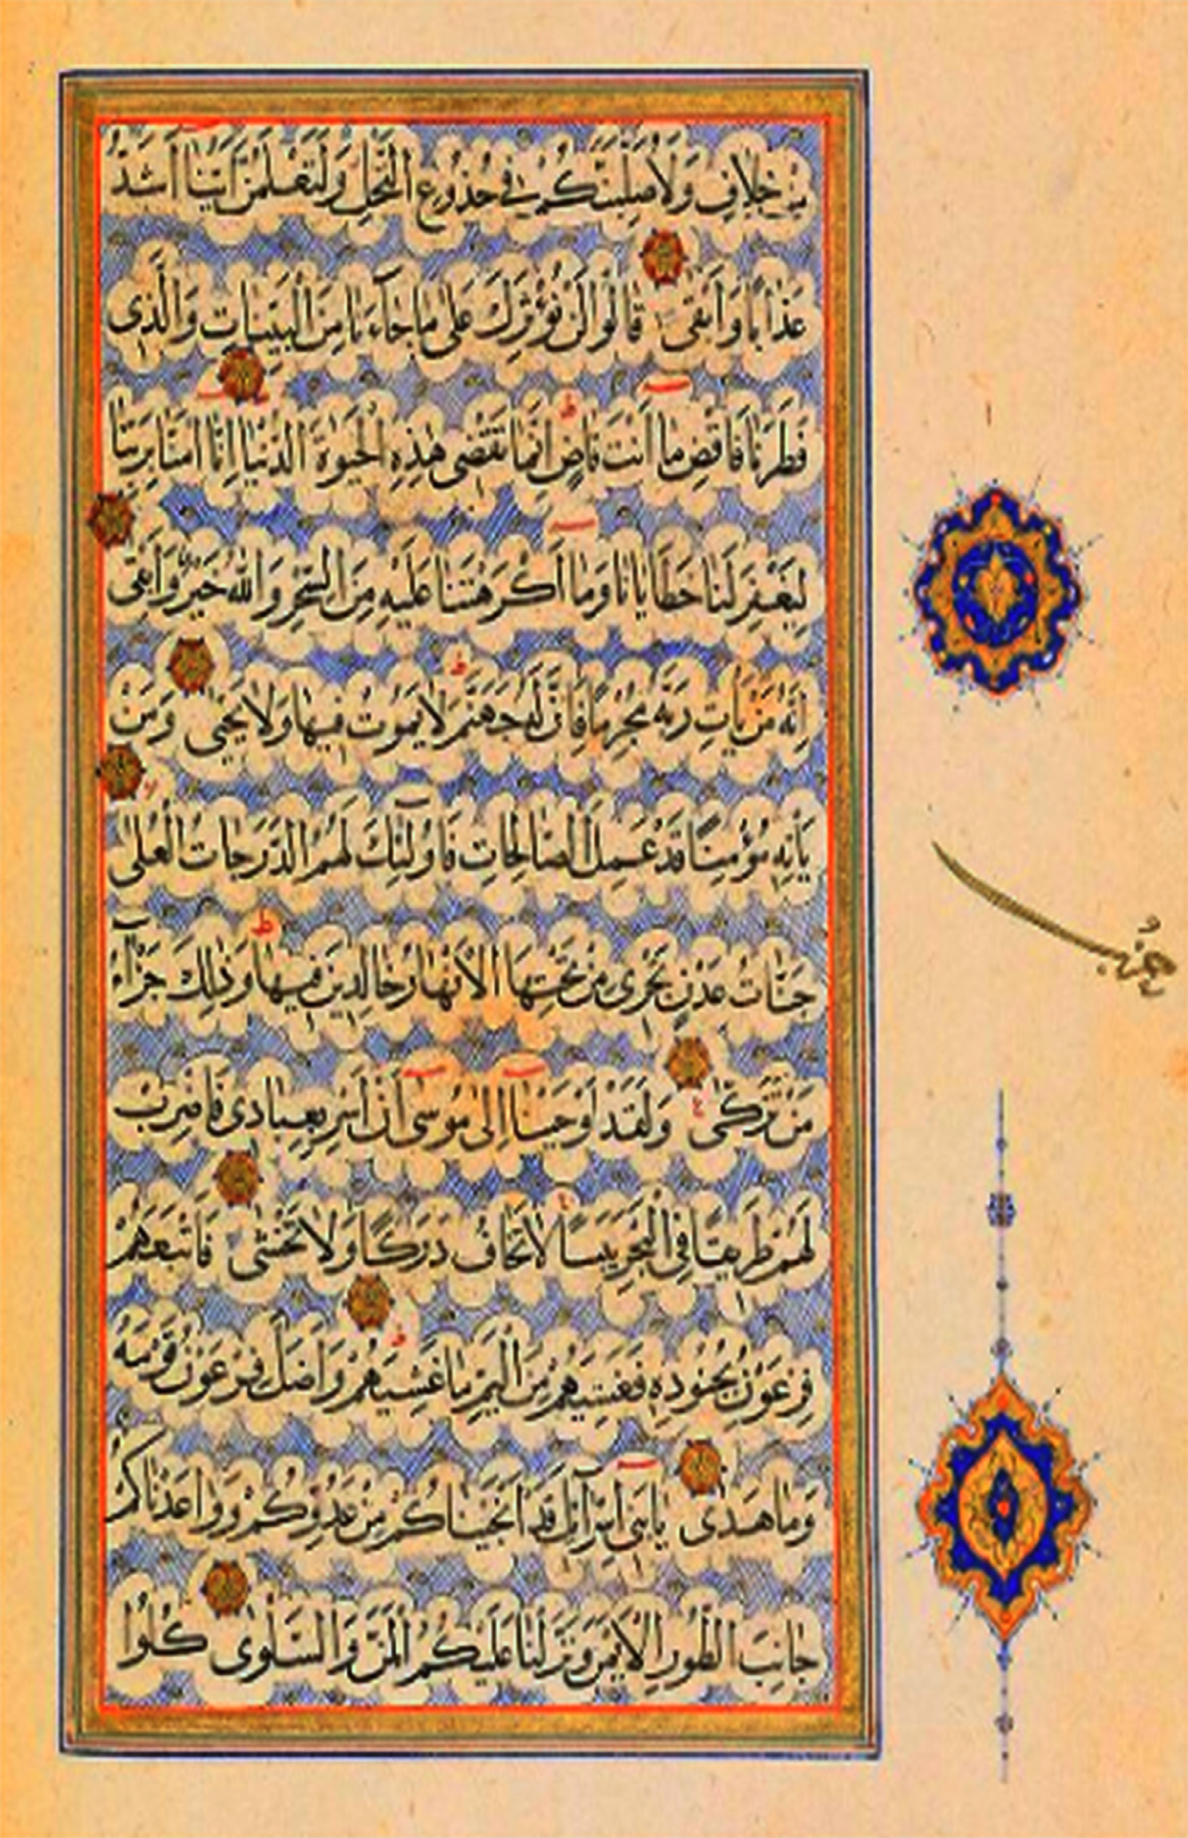 مِنْ خِلَافٍ وَلَأُصَلِّبَنَّكُمْ فِي جُذُوعِ النَّخْلِ وَلَتَعْلَمُنَّ أَيُّنَا أَشَدُّ
عَذَابًا وَأَبْقَى قَالُوا لَنْ نُؤْثِرَكَ عَلَى مَا جَاءَنَا مِنَ الْبَيِّنَاتِ وَالَّذِي
فَطَرَنَا فَاقْضِ مَا أَنْتَ قَاضٍ إِنَّمَا تَقْضِي هَذِهِ الْحَيٰوةَ الدُّنْيَا إِنَّا آمَنَّا بِرَبِّنَا
لِيَغْفِرَ لَنَا خَطَايَانَا وَمَا أَكْرَهْتَنَا عَلَيْهِ مِنَ السِّحْرِ وَاللَّهُ خَيْرٌ وَأَبْقَى
إِنَّهُ مَنْ يَأْتِ رَبَّهُ مُجْرِمًا فَإِنَّ لَهُ جَهَنَّمَ لَا يَمُوتُ فِيهَا وَلَا يَحْيَى وَمَنْ
يَأْتِهِ مُؤْمِنًا قَدْ عَمِلَ الصَّالِحَاتِ فَأُولَئِكَ لَهُمُ الدَّرَجَاتُ الْعُلَى
جَنَّاتُ عَدْنٍ تَجْرِي مِنْ تَحْتِهَا الْأَنْهَارُ خَالِدِينَ فِيهَا وَذَلِكَ جَزَاءُ
مَنْ تَزَكَّى وَلَقَدْ أَوْحَيْنَا إِلَى مُوسَى أَنْ أَسْرِ بِعِبَادِي فَاضْرِبْ
لَهُمْ طَرِيقًا فِي الْبَحْرِ يَبَسًا لَا تَخَافُ دَرَكًا وَلَا تَخْشَى فَأَتْبَعَهُمْ
فِرْعَوْنُ بِجُنُودِهِ فَغَشِيَهُمْ مِنَ الْيَمِّ مَا غَشِيَهُمْ وَأَضَلَّ فِرْعَوْنُ قَوْمَهُ
وَمَا هَدَى يَا بَنِي إِسْرَائِيلَ قَدْ أَنْجَيْنَاكُمْ مِنْ عَدُوِّكُمْ وَوَاعَدْنَاكُمْ
جَانِبَ الطُّورِ الْأَيْمَنَ وَنَزَّلْنَا عَلَيْكُمُ الْمَنَّ وَالسَّلْوَى كُلُوا